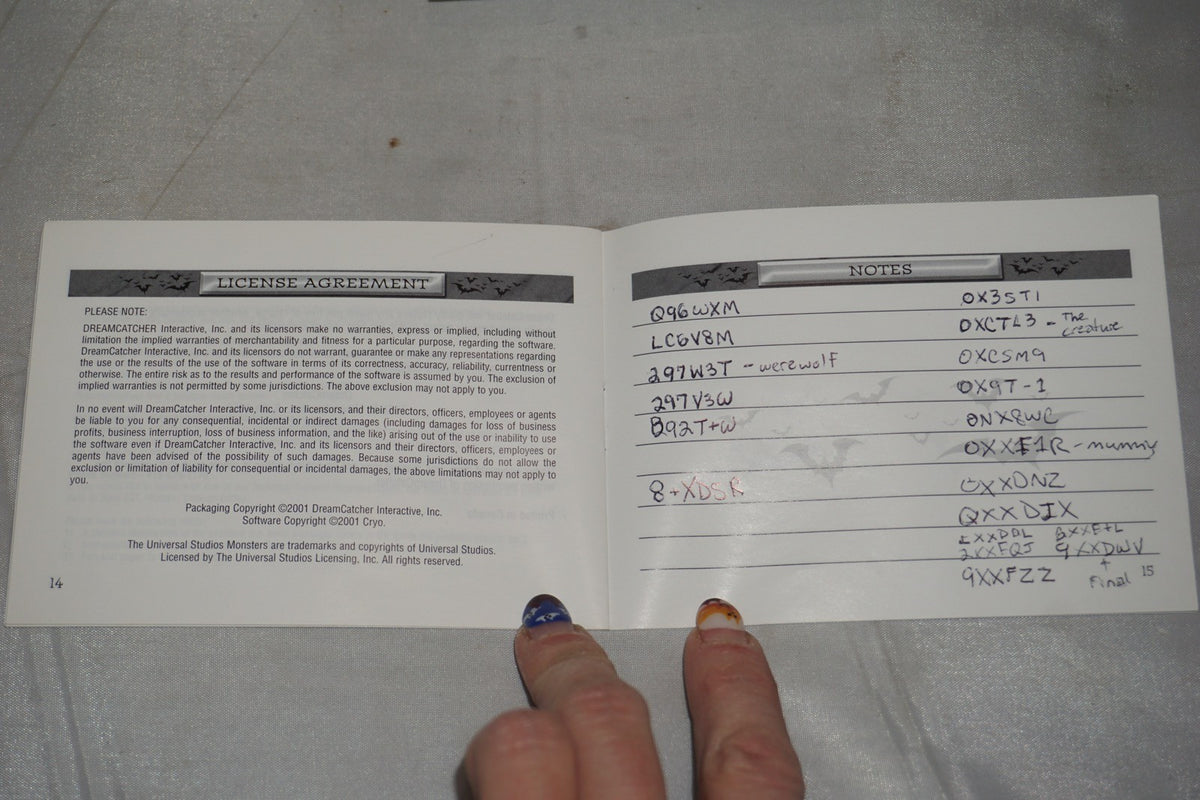 LICENSE AGREEMENT
PLEASE NOTE:
DREAMCATCHER Interactive, Inc. and its licensors make no warranties, express or implied, including without
limitation the implied warranties of merchantability and fitness for a particular purpose, regarding the software.
DreamCatcher Interactive, Inc. and its licensors do not warrant, guarantee or make any representations regarding
the use or the results of the use of the software in terms of its correctness, accuracy, reliability, currentness or
otherwise. The entire risk as to the results and performance of the software is assumed by you. The exclusion of
implied warranties is not permitted by some jurisdictions. The above exclusion may not apply to you.
In no event will DreamCatcher Interactive, Inc. or its licensors, and their directors, officers, employees or agents
be liable to you for any consequential, incidental or indirect damages (including damages for loss of business
profits, business interruption, loss of business information, and the like) arising out of the use or inability to use
the software even if DreamCatcher Interactive, Inc. and its licensors and their directors, officers, employees or
agents have been advised of the possibility of such damages. Because some jurisdictions do not allow the
exclusion or limitation of liability for consequential or incidental damages, the above limitations may not apply to
you.
Packaging Copyright ©2001 DreamCatcher Interactive, Inc.
Software Copyright ©2001 Cryo.
The Universal Studios Monsters are trademarks and copyrights of Universal Studios.
Licensed by The Universal Studios Licensing, Inc. All rights reserved.
14
NOTES
Q96WXM
LC6V8M
297W3T - werewolf
297V3W
B92T+W
8+XDSR
0X3ST1
0XCTL3 - The creature
0XCSM9
0X9T-1
0NX8WC
0XXE1R - mummy
0XXDNZ
QXXDIX
2XXFQJ 9XXDWV
9XXFZZ
↑
Final
15